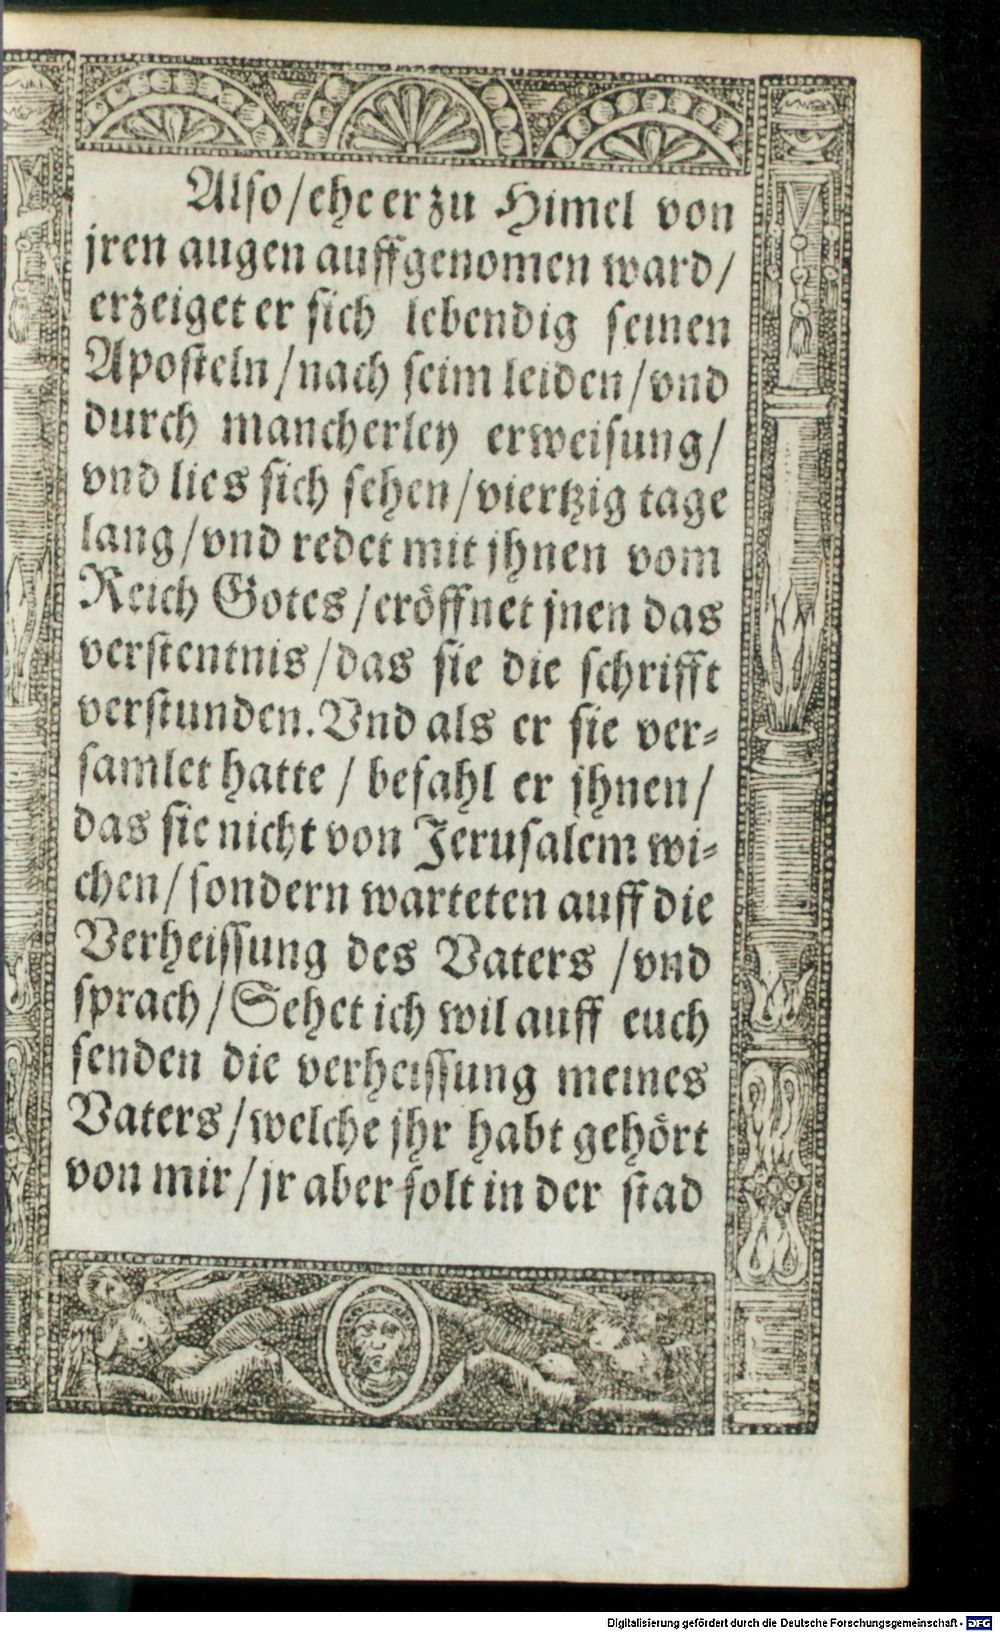 Also/ehe er zu Himel von
jren augen auffgenomen ward/
erzeiget er sich lebendig seinen
Aposteln/nach seim leiden/vnd
durch mancherley erweisung/
vnd lies sich sehen/viertzig tage
lang/vnd redet mit jhnen vom
Reich Gotes/eröffnet jnen das
verstentnis/das sie die schrifft
verstunden.Vnd als er sie ver-
samlet hatte / befahl er jhnen/
das sie nicht von Jerusalem wi-
chen/sondern warteten auff die
Verheissung des Vaters /vnd
sprach/Sehet ich wil auff euch
senden die verheissung meines
Vaters/welche jhr habt gehört
von mir/jr aber solt in der stad
Digitalisierung gefördert durch die Deutsche Forschungsgemeinschaft - DFG